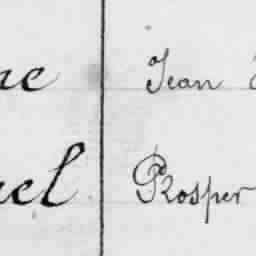 ne Jean
nel Prosper